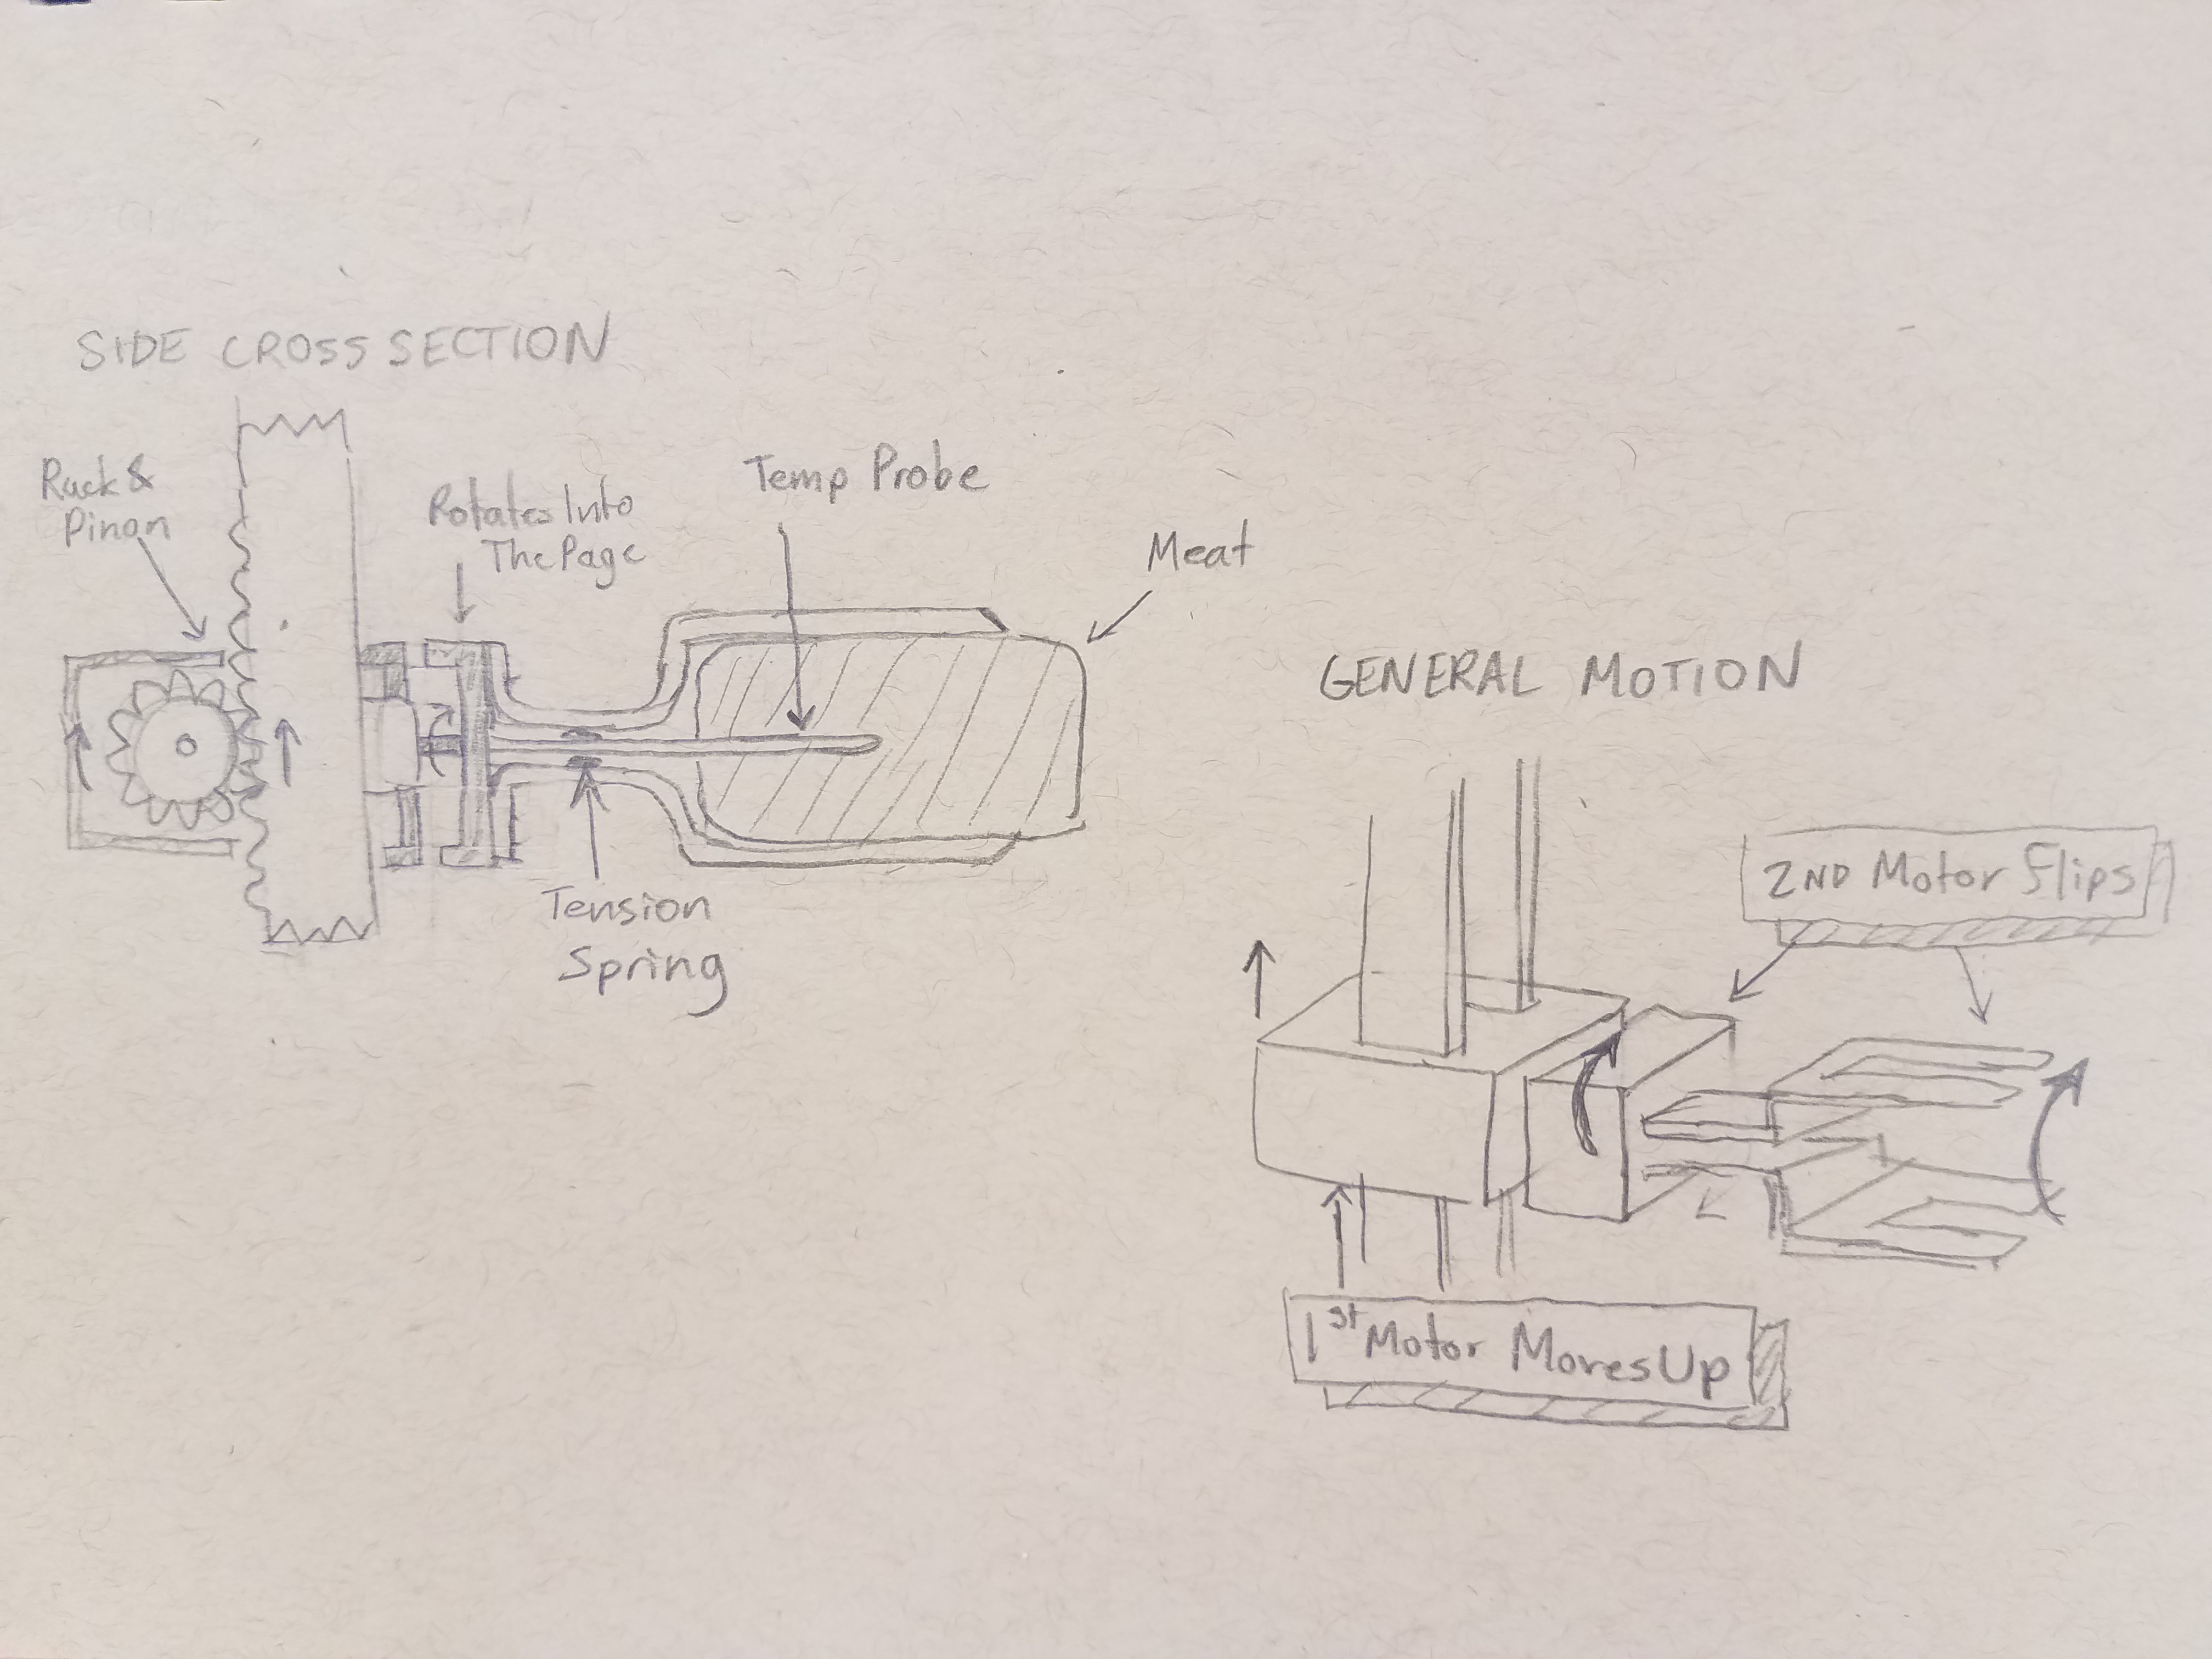 SIDE CROSS SECTION
Rack &
Pinon
Rotates Into
The Page
Temp Probe
Meat
Tension
Spring
GENERAL MOTION
2ND Motor Flips
1st Motor Moves Up